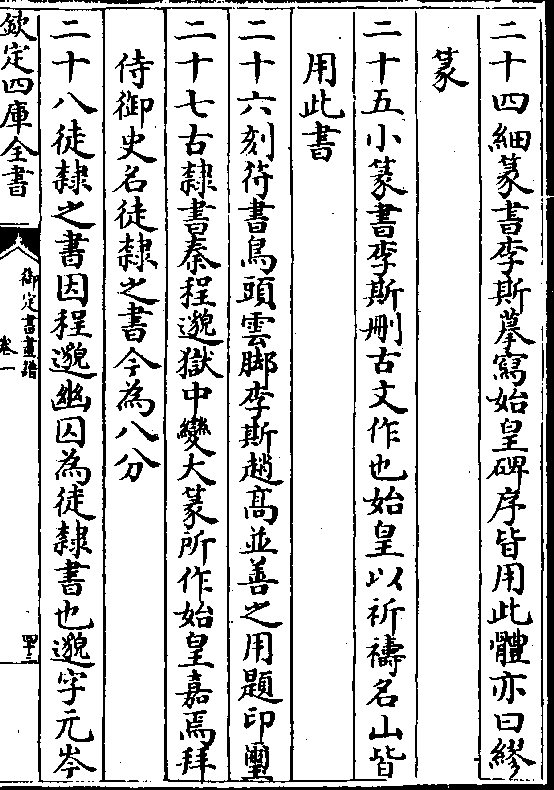 二十四細篆書李斯摹寫始皇碑序皆用此體亦曰繆
篆
二十五小篆書李斯刪古文作也始皇以祈禱名山皆
用此書
二十六刻符書鳥頭雲脚李斯趙髙並善之用題印璽
二十七古隸書秦程邈獄中變大篆所作始皇嘉焉拜
侍御史名徒隸之書今為八分
二十八徒隸之書因程邈幽囚為徒隸書也邈字元岑
欽定四庫全書
御定書畫譜
卷一
四十三